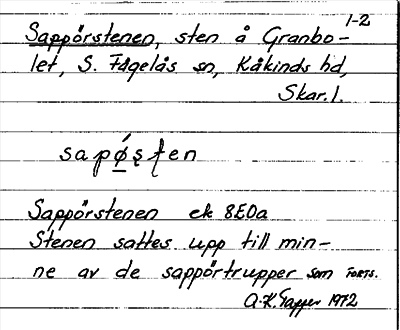 1-2
Sappörstenen, sten å Granbo-
let, S. Fågelås sn, Kåkinds hd,
Skar. l.
sapǿsten
Sappörstenen ek 8E0a
Stenen sattes upp till min-
ne av de sappörtrupper som FORTS.
A.K. Tapper 1972